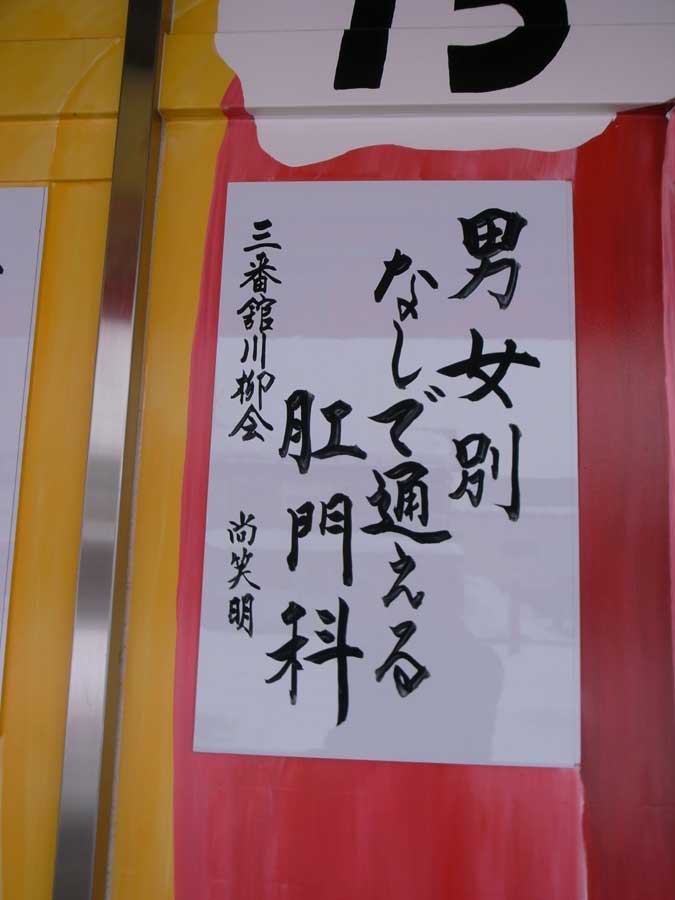 男女別
なしで通える
肛門科
三番館川柳会 尚笑明